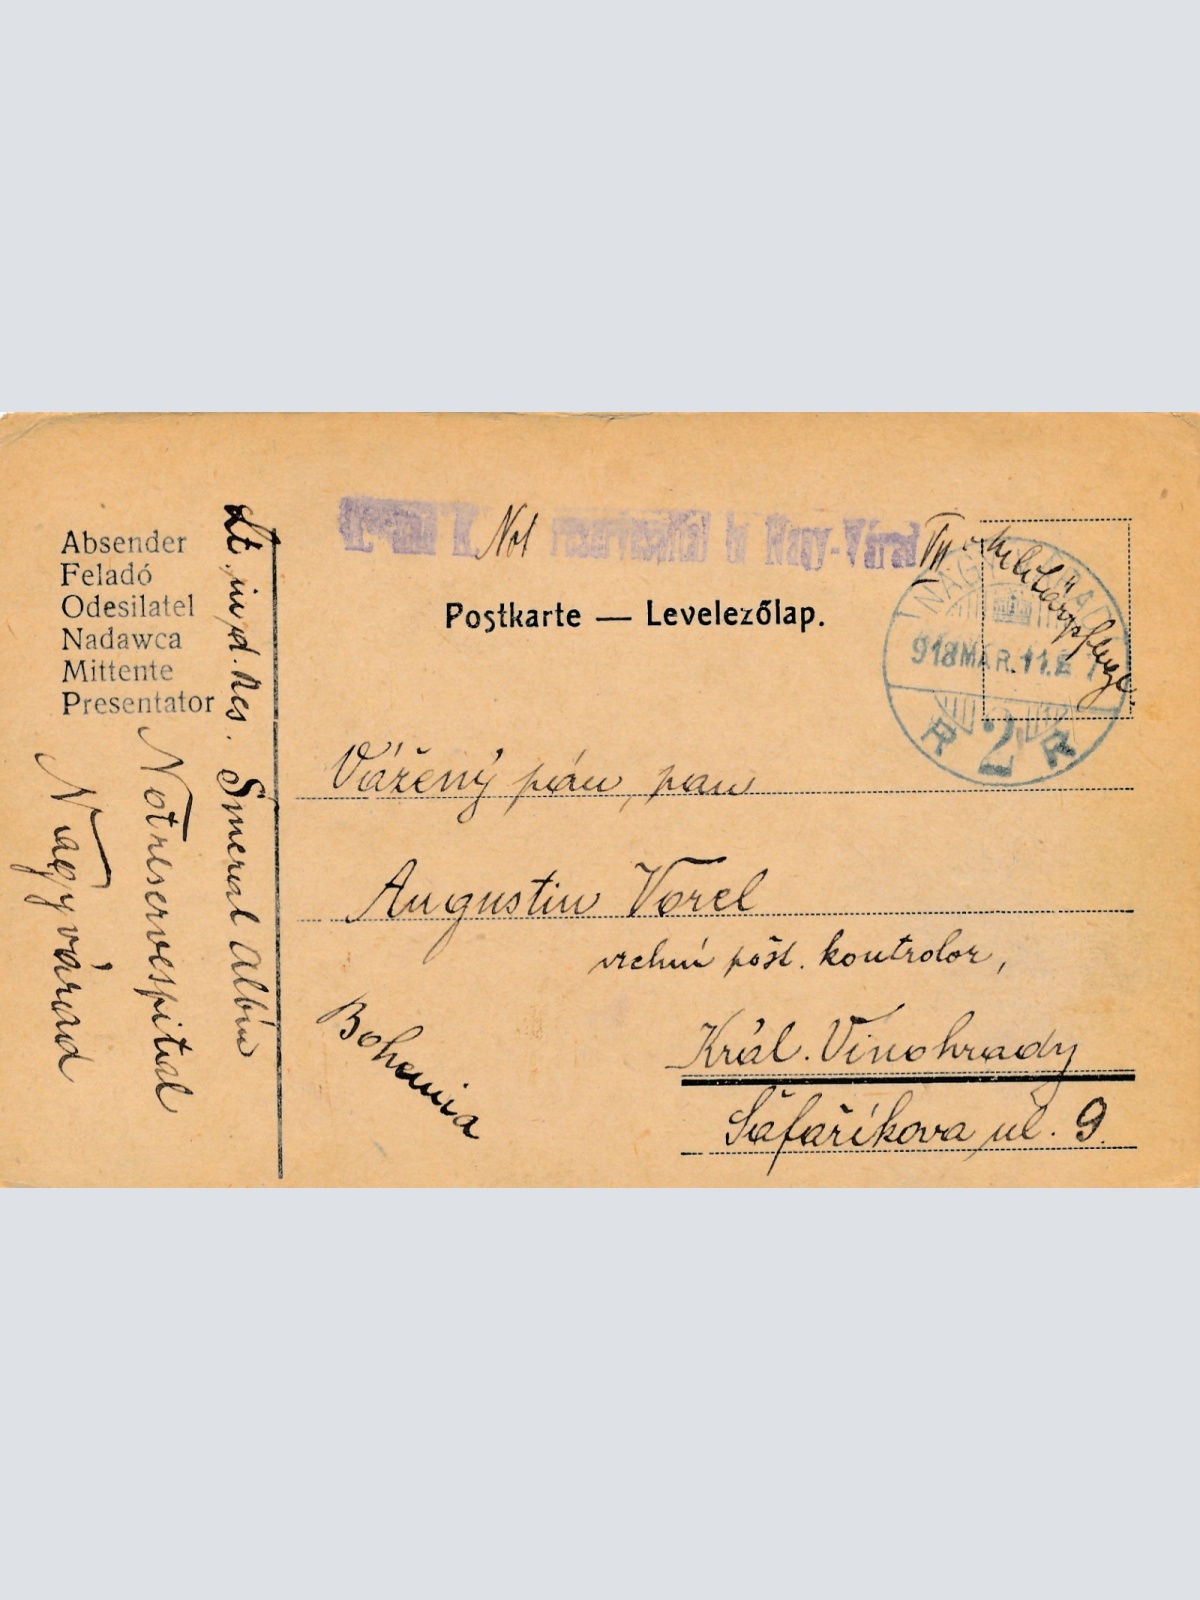 K. Not reservespital in Nagy-Várad
Militärpflege.
Postkarte — Levelezőlap.
Absender
Feladó
Odesilatel
Nadawca
Mittente
Presentator
Lt. i. d. Res. Šmeral Albín
Notreservespital
Nagyvárad
NAGYVÁRAD
918 MÁR. 11.
2
Vážený pán, pan
Augustin Vorel
vrchní pošt. kontrolor,
Král. Vinohrady
Šafaříkova ul. 9.
Bohemia